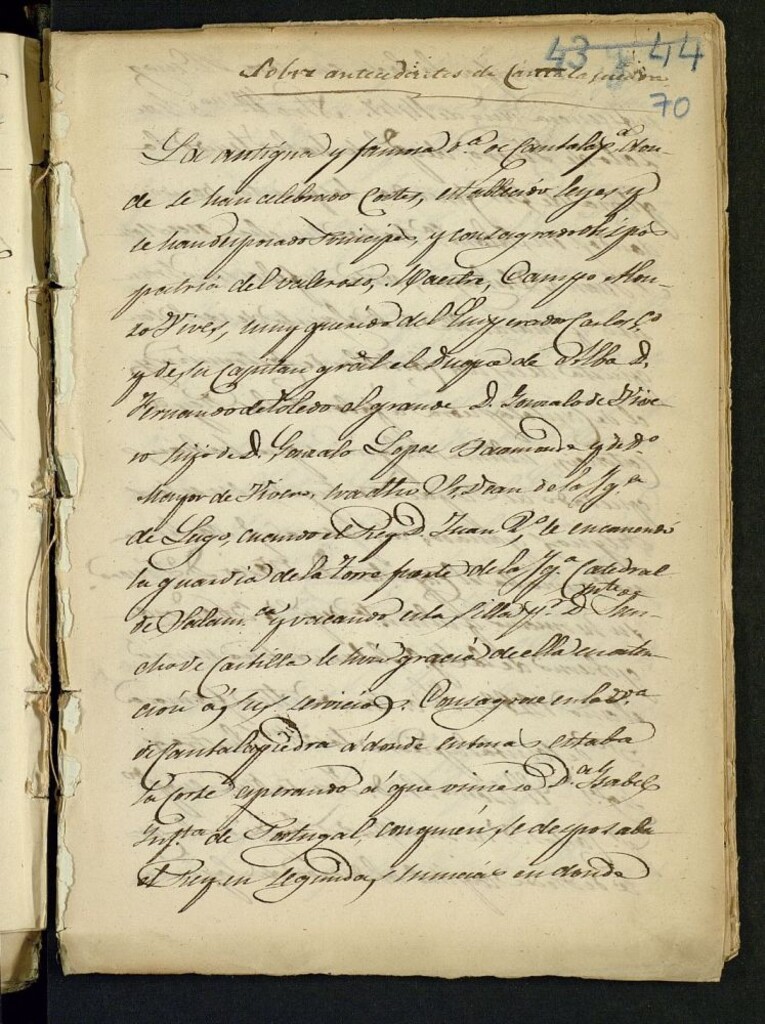 43 44
Sobre antecedentes de Cantalapiedra
70
La antigua y famosa v.ª de Cantalap.ª don-
de se han celebrado Cortes, establecido leyes y
se han desposado Principes, y consagrado Obispos
patria del valeroso, Maestre, Campo Alon-
zo Vives, muy querido del Emperador Carlos 5º
y de su Capitan gral el Duque de Alba D.
Fernando de Toledo el grande D. Gonzalo de Vive-
ro hijo de D. Gonzalo Lopez Baamonde y de D.ª
Mayor de Vivero, Sr. Dean de la Yg.ª
de Lugo, cuando el Rey D. Juan 2º le encomendó
la guardia de la Torre fuerte de la Yg.ª Catedral
de Salam.ca y vacando esta silla p.r D. San-
cho de Castilla le hizo gracia de ella en aten-
ción á sus servicios. Consagrose en la v.ª
de Cantalapiedra á donde entonces estaba
la Corte esperando á que viniese D.ª Ysabel
Inf.ta de Portugal, con quien se desposaba
el Rey en segundas nuncias en donde